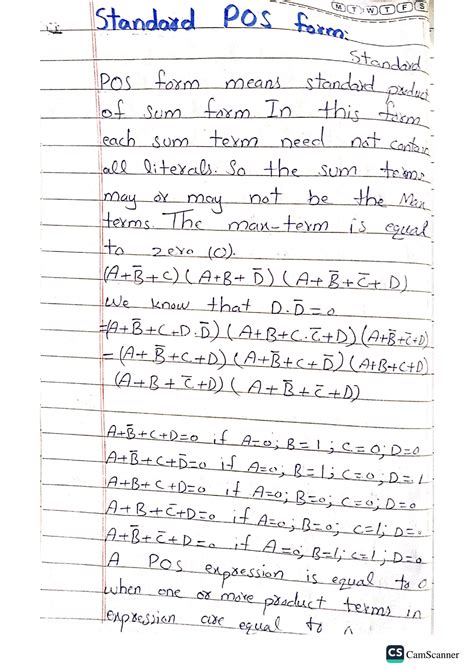 M T W T F S
Standard POS form:
Standard
POS form means standard product
of sum form In this form
each sum term need not contain
all literals. So the sum terms
may or may not be the Max
terms. The max-term is equal
to zero (0).
(A+B̅+C) (A+B+D̅) (A+B̅+C̅+D)
We know that D.D̅=0
=(A+B̅+C+D.D̅) (A+B+C.C̅+D) (A+B̅+C̅+D)
=(A+B̅+C+D) (A+B̅+C+D̅) (A+B+C+D)
(A+B+C̅+D) (A+B̅+C̅+D)
A+B̅+C+D=0 if A=0; B=1; C=0; D=0
A+B̅+C+D̅=0 if A=0; B=1; C=0; D=1
A+B+C+D=0 if A=0; B=0; C=0; D=0
A+B+C̅+D=0 if A=0; B=0; C=1; D=
A+B̅+C̅+D=0 if A=0, B=1; C=1; D=0
A POS expression is equal to 0
when one or more product terms in
expression are equal to
CS CamScanner